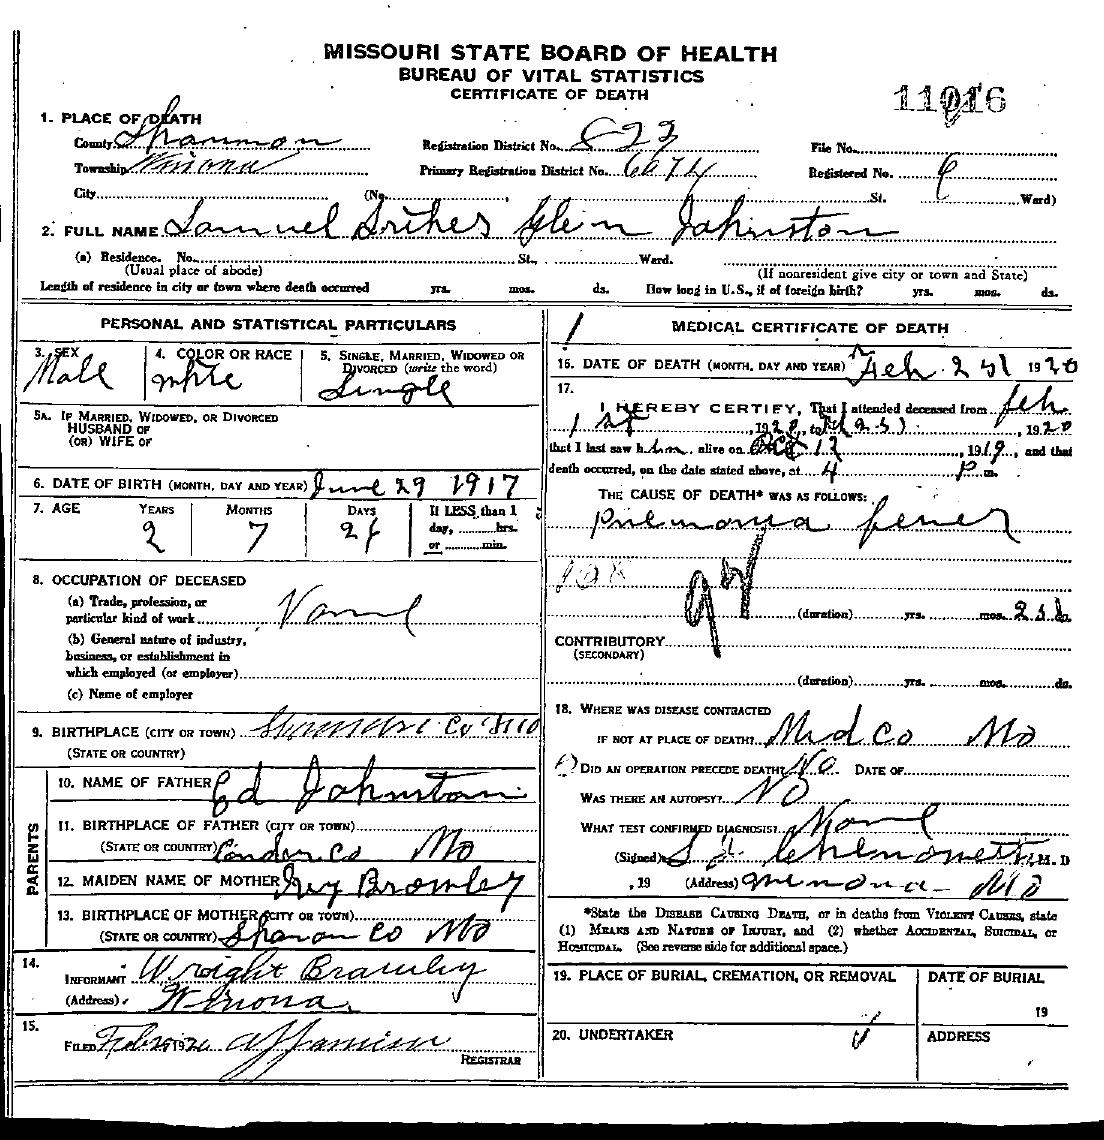 MISSOURI STATE BOARD OF HEALTH
BUREAU OF VITAL STATISTICS
CERTIFICATE OF DEATH
1. PLACE OF DEATH
County Shannon
Township Winona
City (No. St. Ward)
Registration District No. 822
Primary Registration District No. 6074
File No.
Registered No. 9
2. FULL NAME Samuel Glen Johnston
(a) Residence. No. St., Ward.
(Usual place of abode) (If nonresident give city or town and State)
Length of residence in city or town where death occurred yrs. mos. ds. How long in U.S., if of foreign birth? yrs. mos. ds.
PERSONAL AND STATISTICAL PARTICULARS
3. SEX Male
4. COLOR OR RACE white
5. SINGLE, MARRIED, WIDOWED OR DIVORCED (write the word) Single
5A. IF MARRIED, WIDOWED, OR DIVORCED
HUSBAND OF
(OR) WIFE OF
6. DATE OF BIRTH (MONTH, DAY AND YEAR) June 29 1917
7. AGE YEARS 2 MONTHS 7 DAYS If LESS than 1 day, hrs. or min.
8. OCCUPATION OF DECEASED
(a) Trade, profession, or
particular kind of work
(b) General nature of industry,
business, or establishment in
which employed (or employer)
(c) Name of employer
9. BIRTHPLACE (CITY OR TOWN) Co Mo
(STATE OR COUNTRY)
PARENTS
10. NAME OF FATHER Ed Johnston
11. BIRTHPLACE OF FATHER (CITY OR TOWN)
(STATE OR COUNTRY) Co Mo
12. MAIDEN NAME OF MOTHER Ivy Bromley
13. BIRTHPLACE OF MOTHER (CITY OR TOWN)
(STATE OR COUNTRY) Co Mo
14.
INFORMANT Wright Bramley
(Address) Winona
15.
FILED 192
REGISTRAR
MEDICAL CERTIFICATE OF DEATH
16. DATE OF DEATH (MONTH, DAY AND YEAR) Feb. 1920
17.
I HEREBY CERTIFY, That I attended deceased from Feb
1 st, 1920, to , 1920
that I last saw him alive on 12, 1919, and that
death occurred, on the date stated above, at 4 P m.
THE CAUSE OF DEATH* WAS AS FOLLOWS:
Pnemonia fever
(duration) yrs. mos. ds.
CONTRIBUTORY
(SECONDARY)
(duration) yrs. mos. ds.
18. WHERE WAS DISEASE CONTRACTED
IF NOT AT PLACE OF DEATH? Co Mo
DID AN OPERATION PRECEDE DEATH? No DATE OF
WAS THERE AN AUTOPSY? No
WHAT TEST CONFIRMED DIAGNOSIS?
(Signed) M. D
, 19 (Address) Winona Mo
*State the DISEASE CAUSING DEATH, or in deaths from VIOLENT CAUSES, state
(1) MEANS AND NATURE OF INJURY, and (2) whether ACCIDENTAL, SUICIDAL, or
HOMICIDAL. (See reverse side for additional space.)
19. PLACE OF BURIAL, CREMATION, OR REMOVAL
DATE OF BURIAL
19
20. UNDERTAKER
ADDRESS